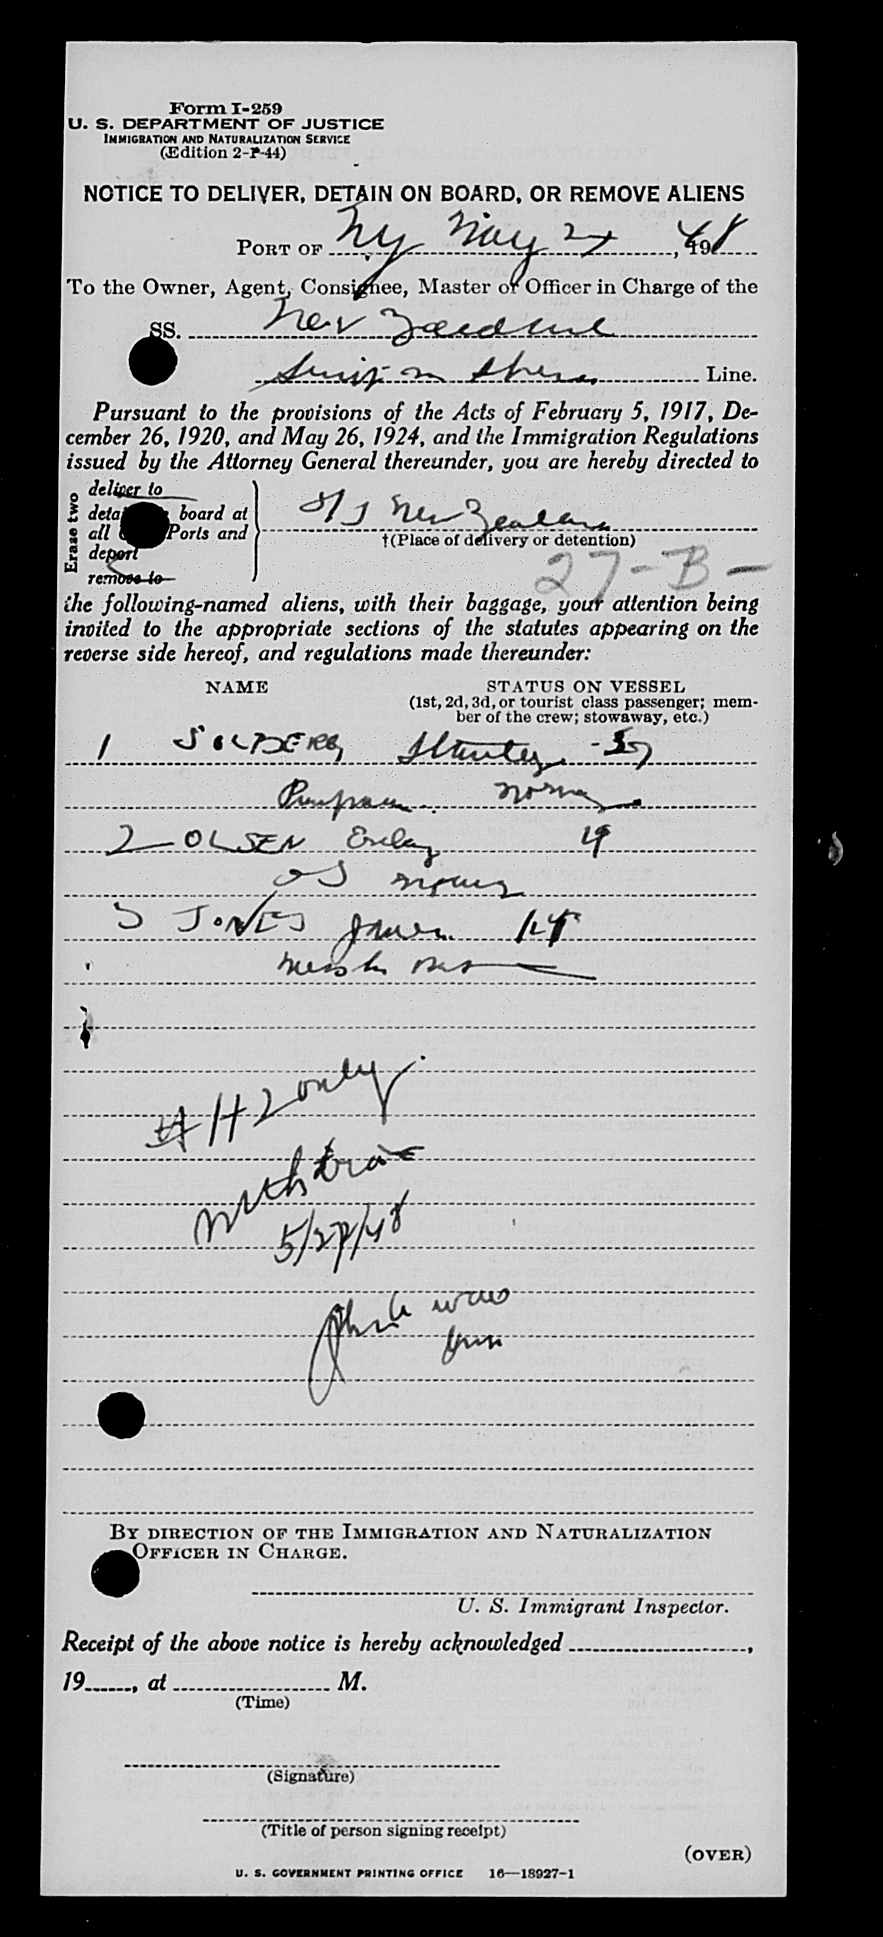 Form I-259
U. S. DEPARTMENT OF JUSTICE
IMMIGRATION AND NATURALIZATION SERVICE
(Edition 2-1-44)
NOTICE TO DELIVER, DETAIN ON BOARD, OR REMOVE ALIENS
PORT OF NY May 27, 1948
To the Owner, Agent, Consignee, Master or Officer in Charge of the
SS. New Zealand
Line.
Pursuant to the provisions of the Acts of February 5, 1917, De-
cember 26, 1920, and May 26, 1924, and the Immigration Regulations
issued by the Attorney General thereunder, you are hereby directed to
Erase two
deliver to
board at
all Ports and
deport
remove to
S/S New Zealand
†(Place of delivery or detention)
27-B-
the following-named aliens, with their baggage, your attention being
invited to the appropriate sections of the statutes appearing on the
reverse side hereof, and regulations made thereunder:
NAME STATUS ON VESSEL
(1st, 2d, 3d, or tourist class passenger; mem-
ber of the crew; stowaway, etc.)
1 SOLBERG Stanley
Pumpman Norway
2 OLSEN 19
OS
3 JONES James
# 1+2 only
5/27/48
BY DIRECTION OF THE IMMIGRATION AND NATURALIZATION
OFFICER IN CHARGE.
U. S. Immigrant Inspector.
Receipt of the above notice is hereby acknowledged
19 , at M.
(Time)
(Signature)
(Title of person signing receipt)
(OVER)
U. S. GOVERNMENT PRINTING OFFICE 16—18927-1